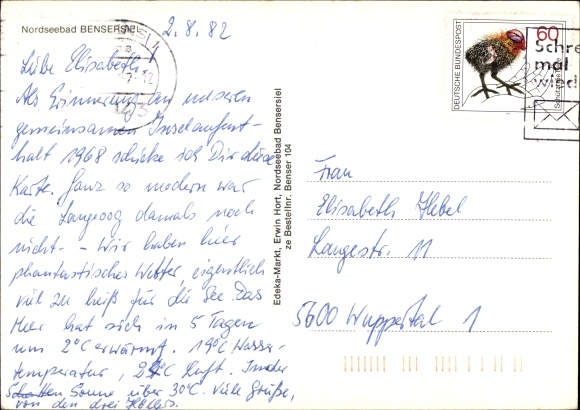 Nordseebad BENSERSIEL
2.8.82
Liebe Elisabeth!
Als Erinnerung an unseren
gemeinsamen Inselaufent-
halt 1968 schicke ich Dir diese
Karte. Ganz so modern war
die Langeoog damals noch
nicht - - Wir haben hier
phantastisches Wetter, eigentlich
viel zu heiß für die See. Das
Meer hat sich in 5 Tagen
um 2°C erwärmt. 19°C Wasser-
temperatur, 29°C Luft. In der
Sonne über 30°C. Viele Grüße,
von den drei
Edeka-Markt, Erwin Hort, Nordseebad Bensersiel
ze Bestellnr. Benser 104
DEUTSCHE BUNDESPOST
60
Schre
mal
wied
Frau
Elisabeth Hebel
Langestr. 11
5600 Wuppertal 1